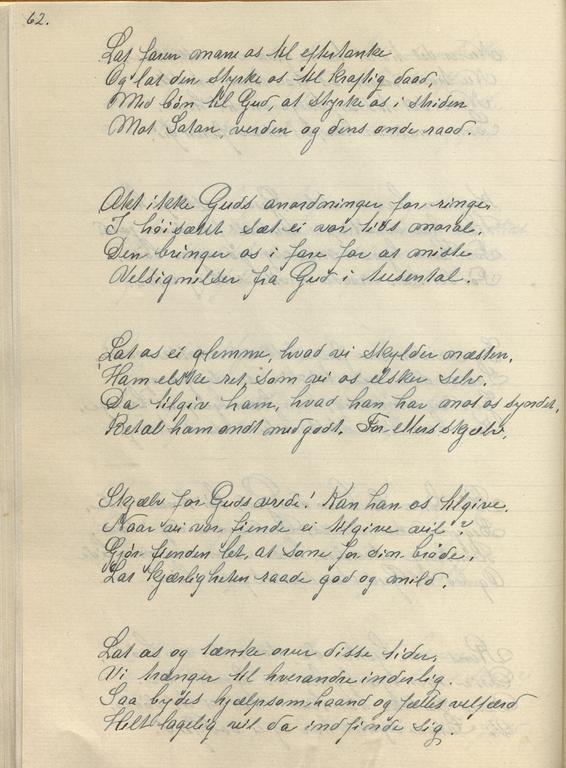 62.
Lat faren mane os til eftertanke
Og lat den styrke os til kraftig daad,
Med bøn til Gud, at styrke os i striden
Mot Satan, verden og dens onde raad.
Akt ikke Guds anordninger for ringe,
I høisætet sæt ei vor tids moral.
Den bringer os i fare for at miste
Velsignelser fra Gud i tusental.
Lat os ei glemme, hvad vi skylder næsten,
Ham elske ret, som vi os elsker selv.
Da tilgiv ham, hvad han har mot os syndet,
Betal ham ondt med godt. For ellers skjælv,
Skjælv for Guds vrede! Kan han os tilgive,
Naar vi vor fiende ei tilgive vil?
Gjør fienden let, at sone for din brøde,
Lat kjærligheten raade god og mild.
Lat os og tænke over disse tider,
Vi trænger til hverandre inderlig.
Saa bydes hjælpsom haand og fælles velfærd
Helt lagelig vil da indfinde sig.